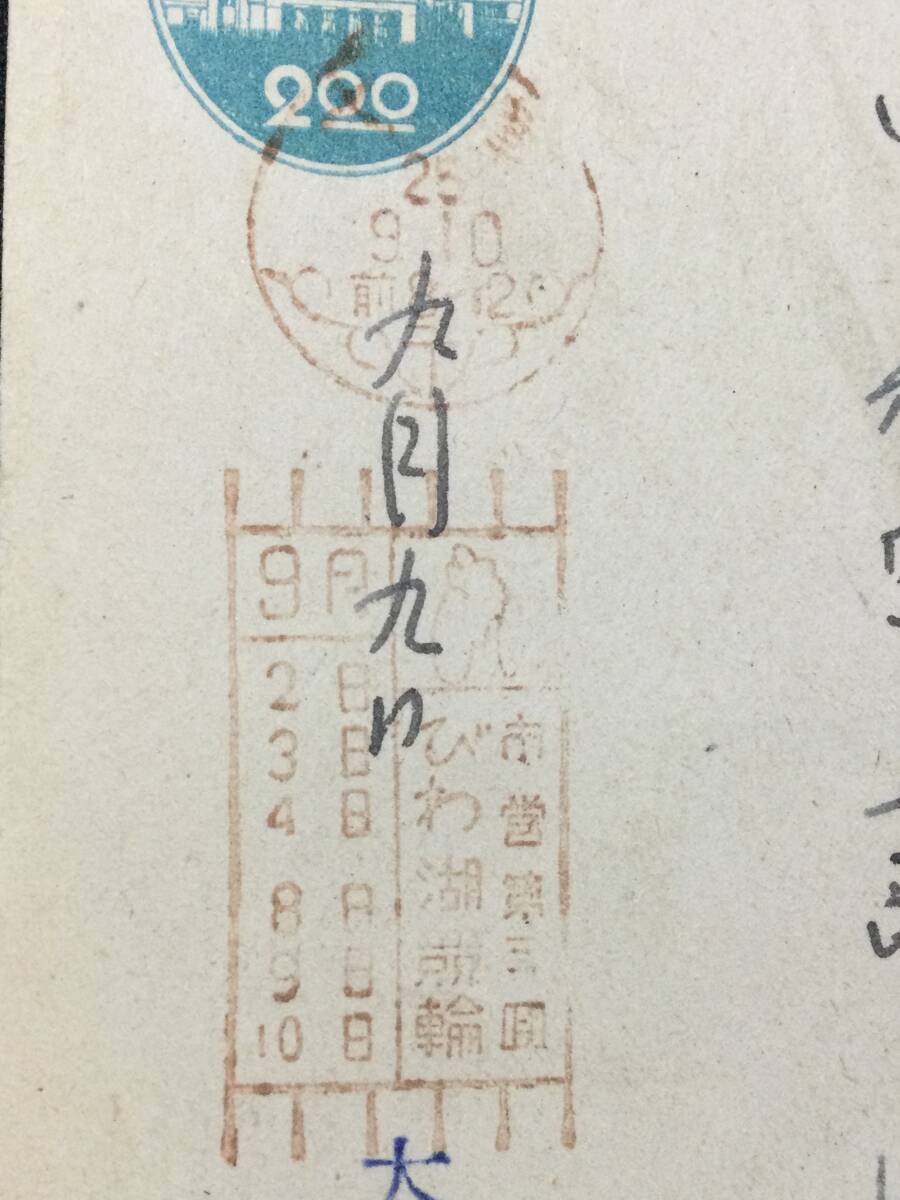 200
25
9.10
前8-12
九月九日
9月
2日
3日
4日
8日
9日
10日
びわ湖競輪
市営第三回
大